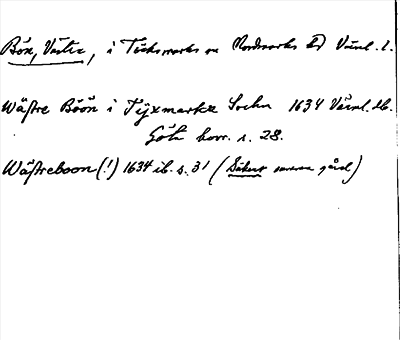 Bön, Västra, i Töcksmarks sn Nordmarks hd Värml. l.
Wästre Böön i Tÿxmarkz Sochn 1634 Värml. tb.
Göta hovr. s. 28.
Wästreboon (!) 1634 ib. s. 31 (Säkert samma gård)